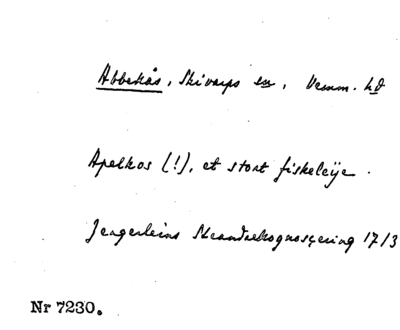 Abbekås, Skivarps sn, Vemm. hd
Apelkos (!), et stort fiskeleije.
Strandrekognosçering 1713
Nr 7230.